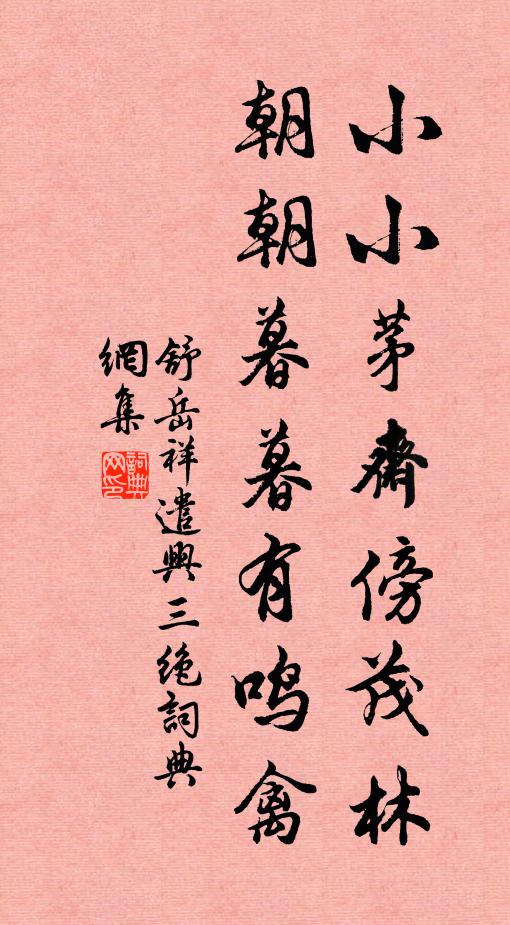 小小茅齋傍茂林
朝朝暮暮有鳴禽
舒岳祥遣興三絶詞典
網集
詞典網印